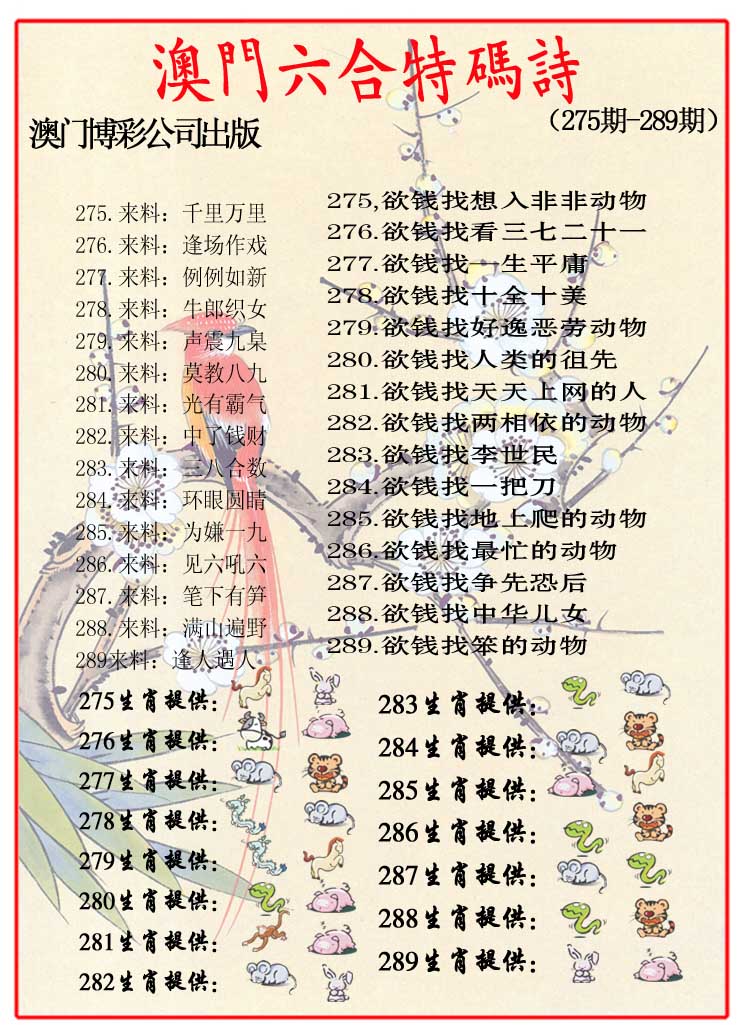 澳門六合特碼詩
澳门博彩公司出版
（275期-289期）
275.来料：千里万里
276.来料：逢场作戏
277.来料：例例如新
278.来料：牛郎织女
279.来料：声震九臬
280.来料：莫教八九
281.来料：光有霸气
282.来料：中了钱财
283.来料：三八合数
284.来料：环眼圆睛
285.来料：为嫌一九
286.来料：见六吼六
287.来料：笔下有笋
288.来料：满山遍野
289来料：逢人遇人
275,欲钱找想入非非动物
276.欲钱找看三七二十一
277.欲钱找一生平庸
278.欲钱找十全十美
279.欲钱找好逸恶劳动物
280.欲钱找人类的祖先
281.欲钱找天天上网的人
282.欲钱找两相依的动物
283.欲钱找李世民
284.欲钱找一把刀
285.欲钱找地上爬的动物
286.欲钱找最忙的动物
287.欲钱找争先恐后
288.欲钱找中华儿女
289.欲钱找笨的动物
275生肖提供：
276生肖提供：
277生肖提供：
278生肖提供：
279生肖提供：
280生肖提供：
281生肖提供：
282生肖提供：
283生肖提供：
284生肖提供：
285生肖提供：
286生肖提供：
287生肖提供：
288生肖提供：
289生肖提供：